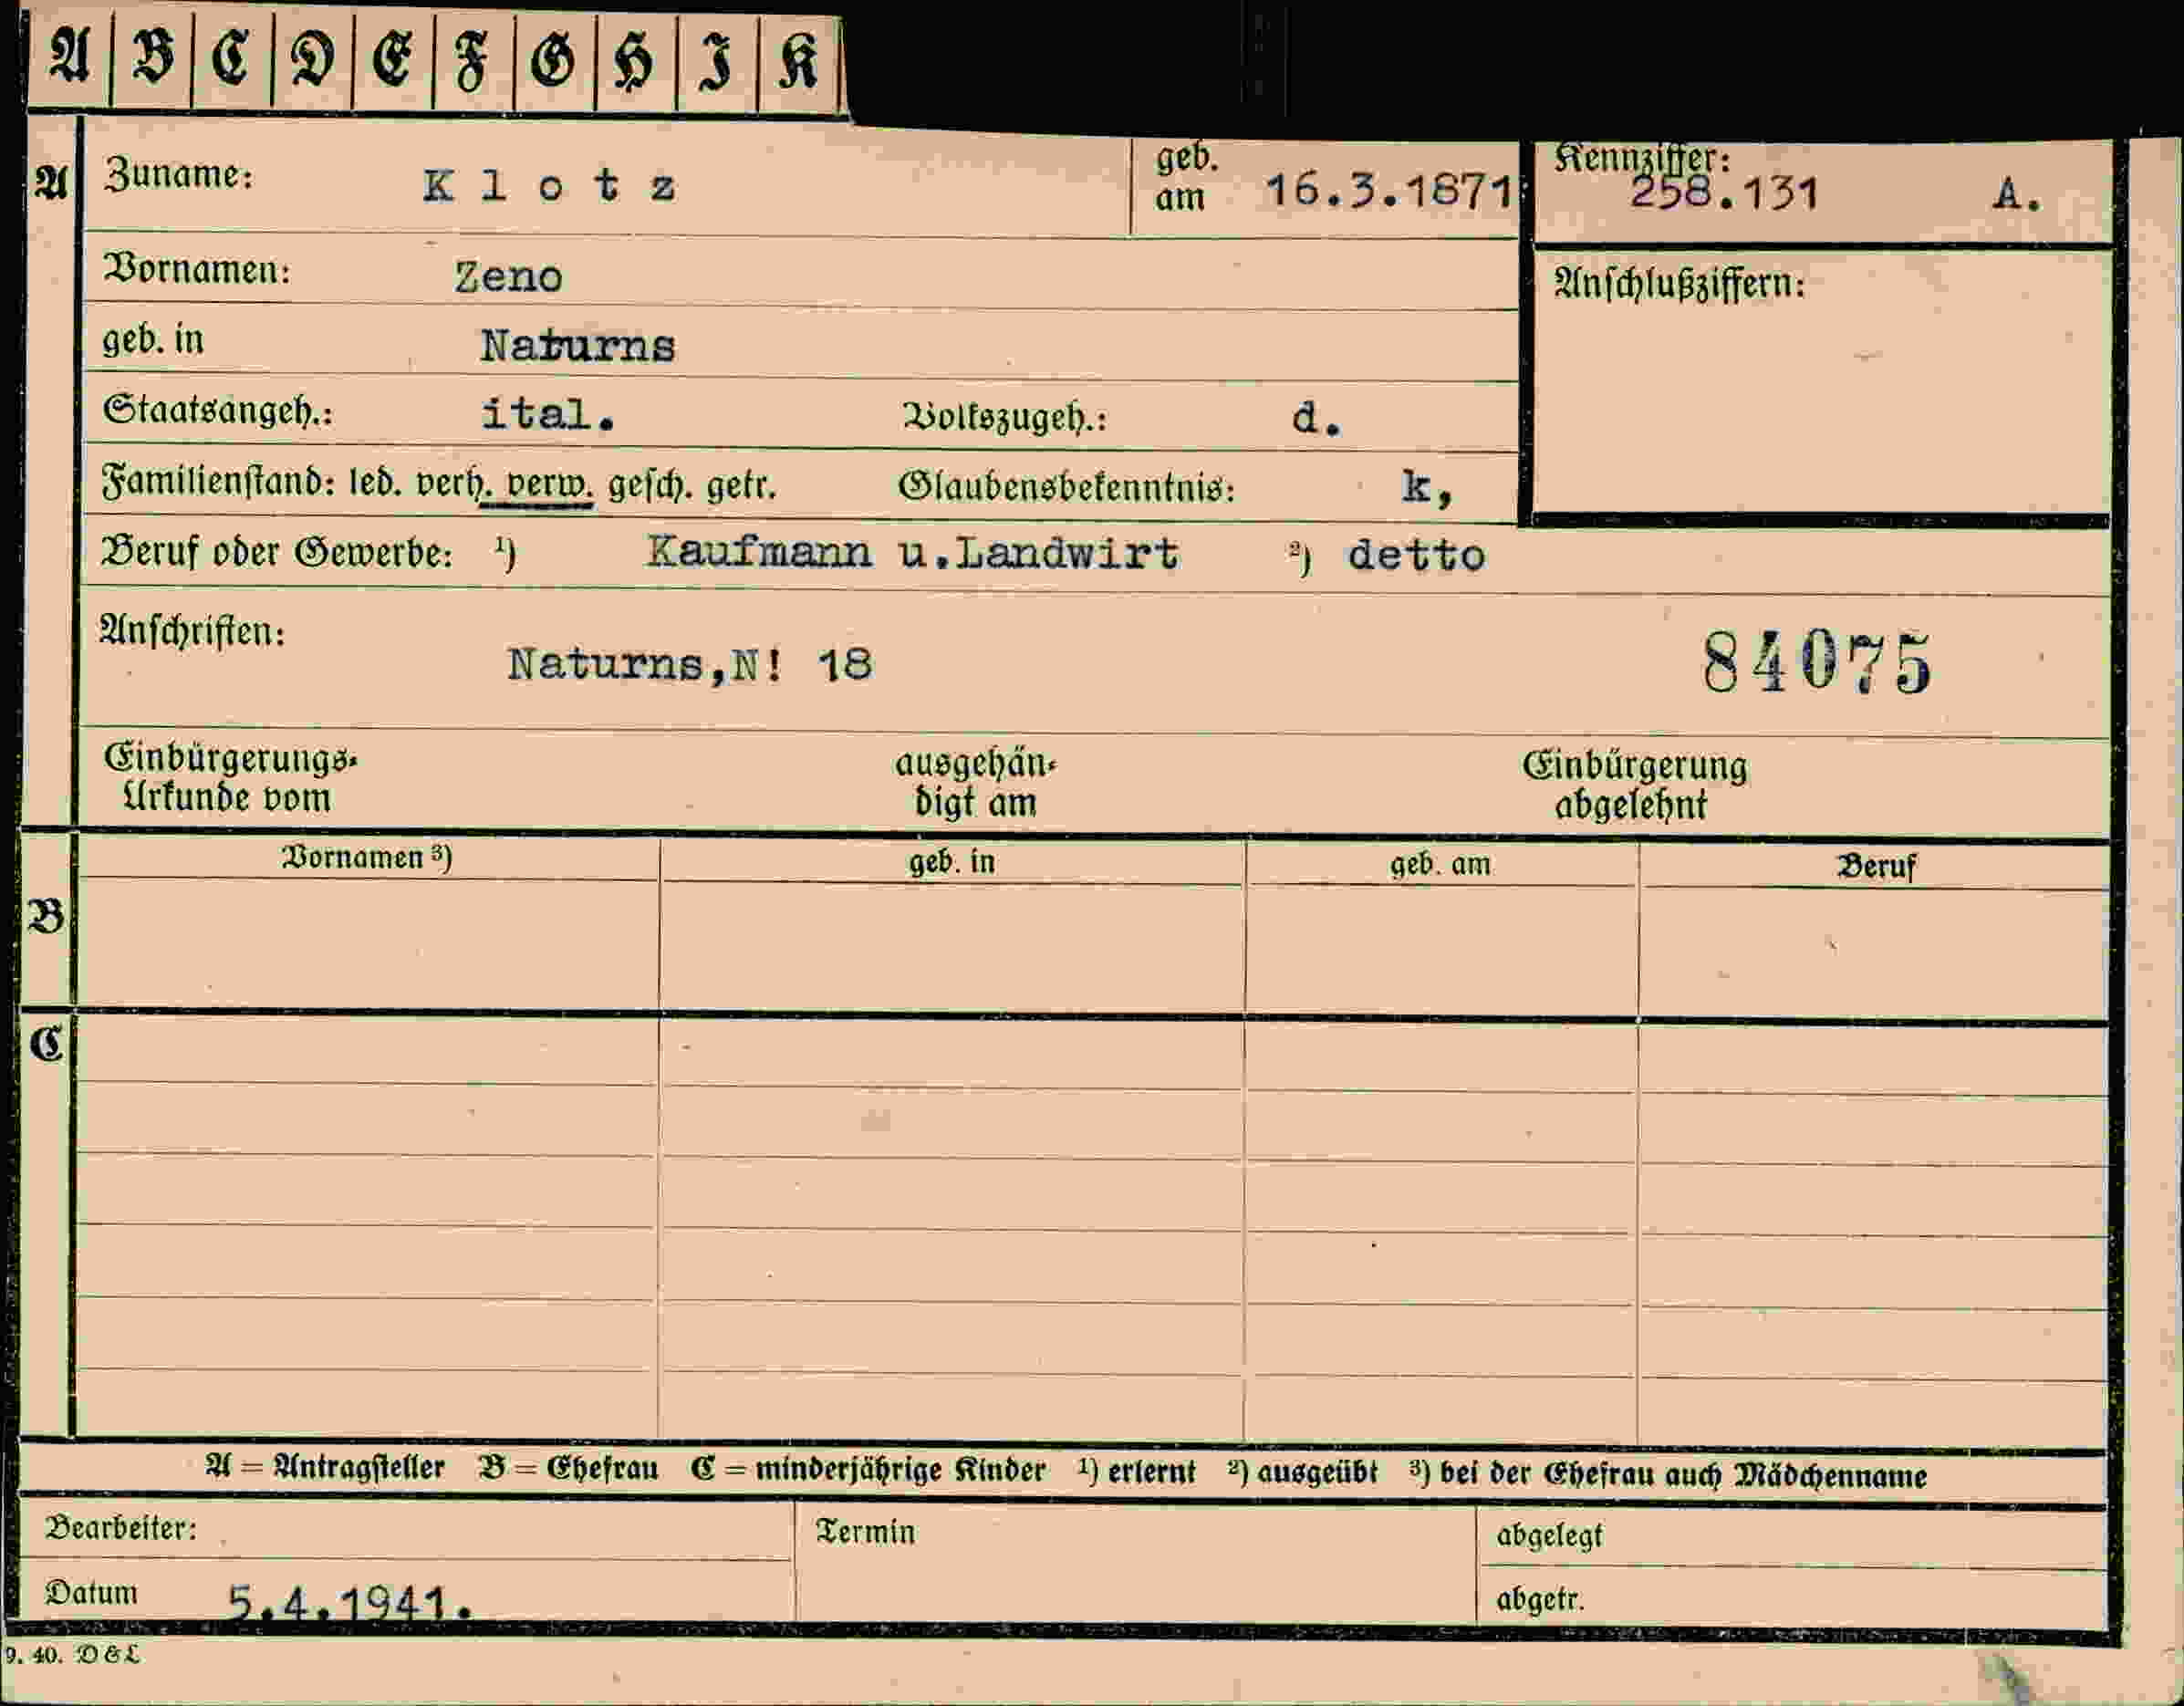 A B C D E F G H I K
A Zuname: Klotz geb. am 16.3.1871 Kennziffer: 258.131 A.
Vornamen: Zeno Anschlußziffern:
geb. in Naturns
Staatsangeh.: ital. Volkszugeh.: d.
Familienstand: led. verh. verw. gesch. getr. Glaubensbekenntnis: k,
Beruf oder Gewerbe: ¹) Kaufmann u.Landwirt ²) detto
Anschriften: Naturns,N! 18 84075
Einbürgerungs- ausgehän- Einbürgerung
Urkunde vom digt am abgelehnt
Vornamen ³) geb. in geb. am Beruf
B
C
A = Antragsteller B = Ehefrau C = minderjährige Kinder ¹) erlernt ²) ausgeübt ³) bei der Ehefrau auch Mädchenname
Bearbeiter: Termin abgelegt
Datum 5.4.1941. abgetr.
9. 40. D & L